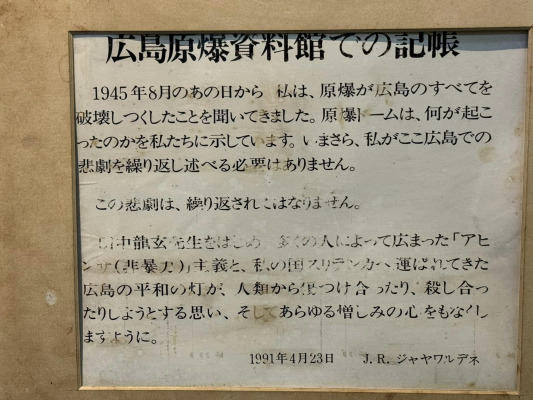 広島原爆資料館での記帳
1945年8月のあの日から 私は、原爆が広島のすべてを
破壊しつくしたことを聞いてきました。原爆ドームは、何が起こ
ったのかを私たちに示しています。いまさら、私がここ広島での
悲劇を繰り返し述べる必要はありません。
この悲劇は、繰り返されてはなりません。
中龍玄先生をはじめ 多くの人によって広まった「アヒ
ンサ(非暴力)」主義と、私の国スリランカへ運ばれてきた
広島の平和の灯が、人類から傷つけ合ったり、殺し合っ
たりしようとする思い、そしてあらゆる憎しみの心をもなくし
ますように。
1991年4月23日 J.R.ジャヤワルデネ